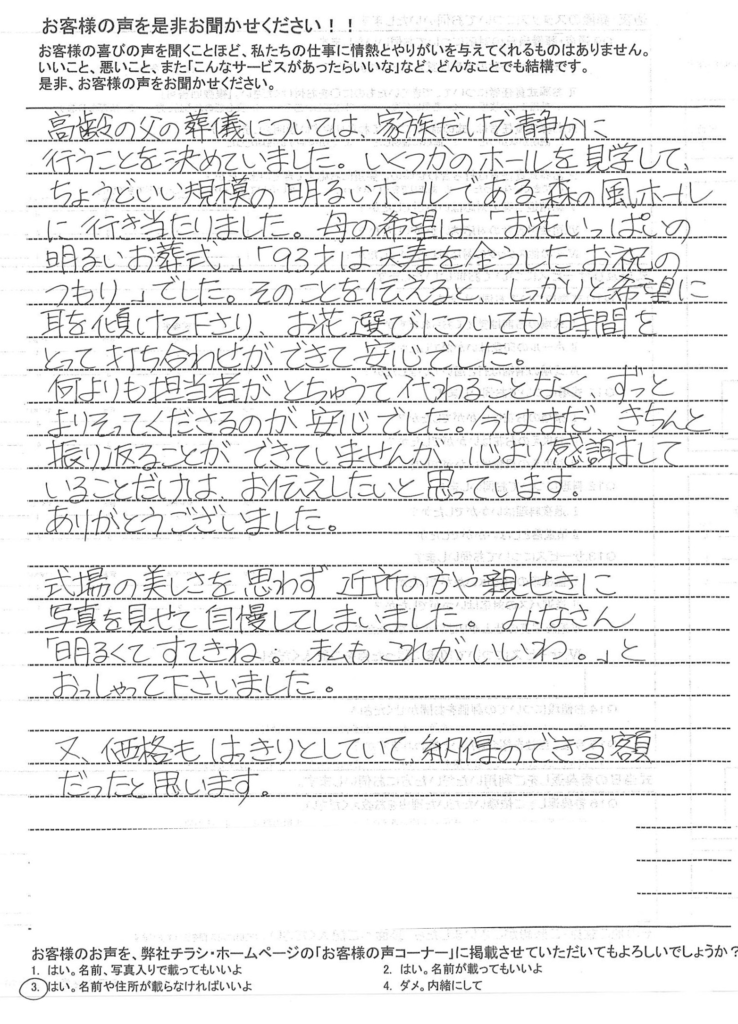 お客様の声を是非お聞かせください！！
お客様の喜びの声を聞くことほど、私たちの仕事に情熱とやりがいを与えてくれるものはありません。
いいこと、悪いこと、また「こんなサービスがあったらいいな」など、どんなことでも結構です。
是非、お客様の声をお聞かせください。
高齢の父の葬儀については、家族だけで静かに
行うことを決めていました。いくつかのホールを見学して、
ちょうどいい規模の明るいホールである森の風ホール
に行き当たりました。母の希望は、「お花いっぱいの
明るいお葬式」「93才は天寿を全うしたお祝の
つもり」でした。そのことを伝えると、しっかりと希望に
耳を傾けて下さり、お花選びについても時間を
とって打ち合わせができて安心でした。
何よりも担当者がとちゅうで代わることなく、ずっと
よりそってくださるのが安心でした。今はまだ、きちんと
振り返ることができていませんが、心より感謝して
いることだけは、お伝えしたいと思っています。
ありがとうございました。
式場の美しさを思わず近所の方や親せきに
写真を見せて自慢してしまいました。みなさん
「明るくてすてきね。私もこれがいいわ。」と
おっしゃって下さいました。
又、価格もはっきりとしていて、納得のできる額
だったと思います。
お客様のお声を、弊社チラシ・ホームページの「お客様の声コーナー」に掲載させていただいてもよろしいでしょうか？
1. はい。名前、写真入りで載ってもいいよ 2. はい。名前が載ってもいいよ
3. はい。名前や住所が載らなければいいよ 4. ダメ。内緒にして